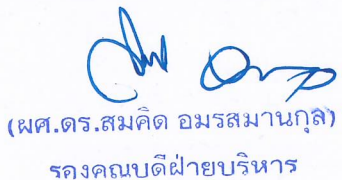 (ผศ.ดร.สมคิด อมรสมานกุล)
รองคณบดีฝ่ายบริหาร